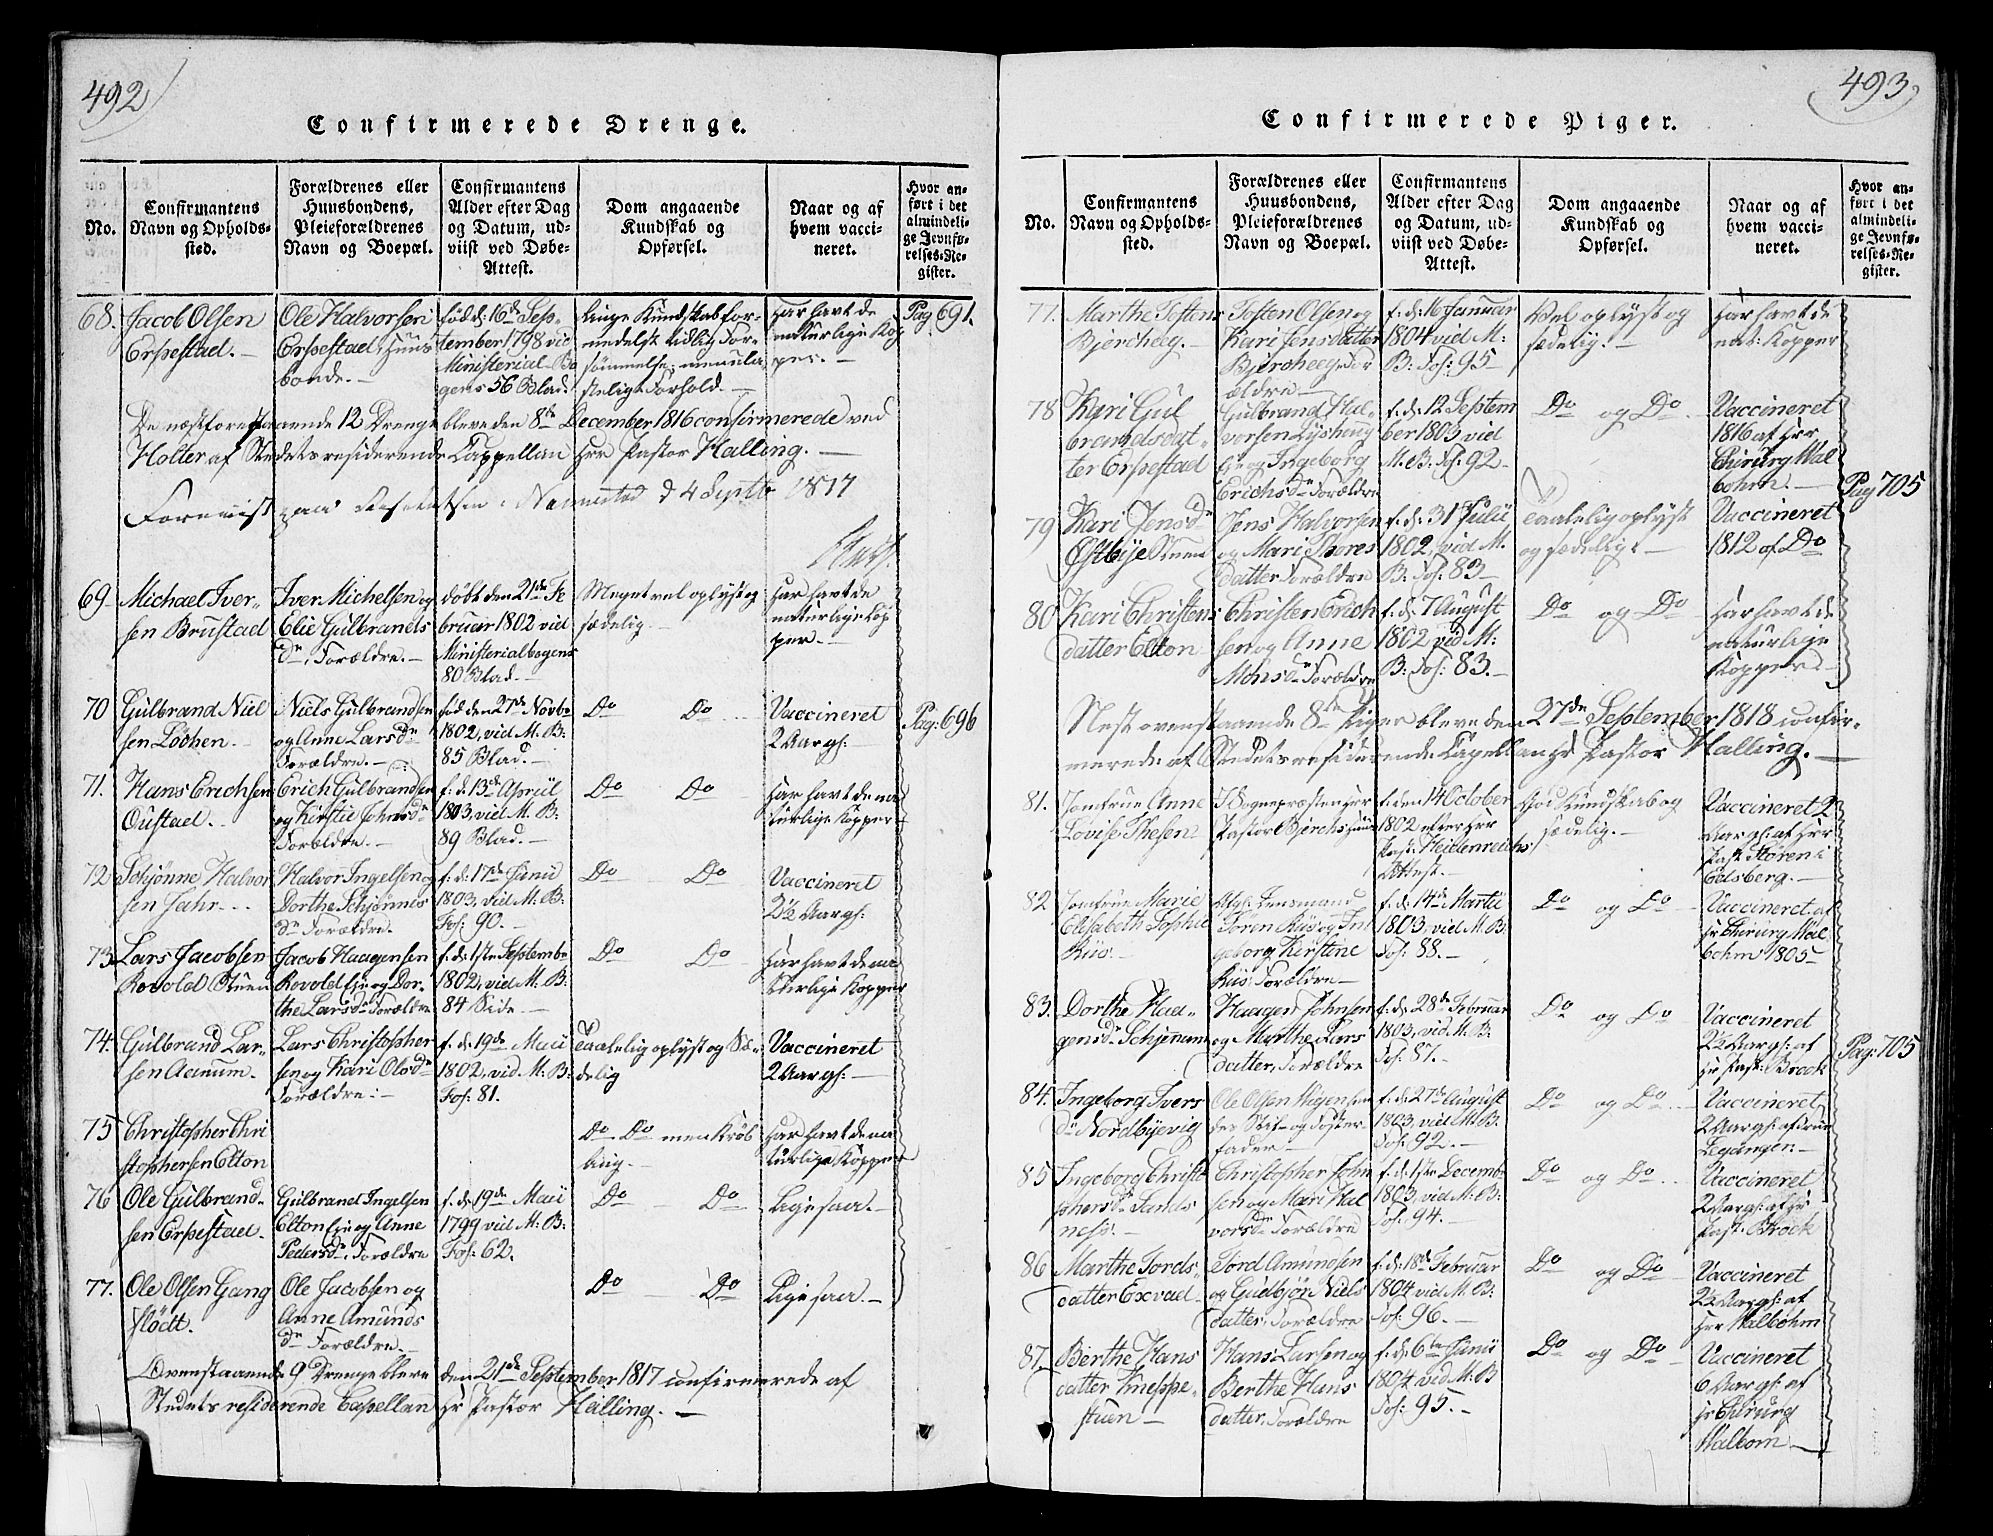 492
Confirmerede Drenge.
No.
Confirmantens
Navn og Opholds-
sted.
Forældrenes eller
Huusbondens,
Pleieforældrenes
Navn og Boepæl.
Confirmantens
Alder efter Dag
og Datum, ud-
viist ved Døbe-
Attest.
Dom angaaende
Kundskab og
Opførsel.
Naar og af
hvem vacci-
neret.
Hvor an-
ført i det
almindeli-
ge Jevnfø-
relses-Re-
gister.
68.
Jacob Olsen
Erpestad.
Ole Halvorsen
Erpestad, Huus
bonde.
fød d: 16de Sep-
tember 1798 vid
Ministerial-Bo
gens 56 Blad.
Ringe Kundskab for-
medelst tidlig For-
sømmelse, men ula-
steligt Forhold.
Har havt de
naturlige Kop
per.
Pag 691.
De næstforestaaende 12 Drenge bleve den 8de December 1816 confirmerede ved
Holter af Stedets residerende Cappellan Hrr Pastor Halling.
d 4 Septbr 1817
69
Michael Iver-
sen Brustad
Iver Michelsen og
Elie Gulbrands
dr, Forældre.
døbt den 21de Fe
bruar 1802 vid
Ministerialbogens
80 Blad.
Meget vel oplyst og
sædelig.
Har havt de
naturlige Kop
per.
70
Gulbrand Niel
sen Løchen.
Niels Gulbrandsen
og Anne Larsdr
Forældre.
fød den 27de Novbr
1802, vid M: B:
85 Blad.
Do Do
Vaccineret
2 Aargl:
Pag: 696
71.
Hans Erichsen
Oustad.
Erich Gulbrandsen
og Kirstie Johnsdr
Forældre.
f: d: 13de April
1803, vid M: B:
89 Blad.
Do Do
Har havt de na
turlige Kopper
72
Schjønne Halvor
sen Jahr.
Halvor Ingelsen og
Dorthe Schjønnes
dr Forældre.
f: d: 17de Junii
1803, vid M: B:
Fol: 90.
Do Do
Vaccineret
2½ Aargl:
73
Lars Jacobsen
Rovold Stuen
Jacob Haagensen
Rovold Eje og Dor-
the Larsdr Forældre
f: d: 1ste Septembr
1802, vid M: B:
84 Side.
Do Do
Har havt de na
turlige Kopper
74.
Gulbrand Lar-
sen Aamum.
Lars Christopher
sen og Kari Olsdr
Forældre:
f: d: 19de Maii
1802, vid M: B:
Fol: 81.
Taalelig oplyst og Sæ-
delig
Vaccineret
2 Aargl:
75
Christopher Chri
stophersen Elton
Do Do men Krøb
ling.
Har havt de na
turlige Kopper
76
Ole Gulbrand
sen Erpestad.
Gulbrand Ingelsen
Elton Eje og Anne
Pedersdr. Forældre
f: d: 19de Maii
1799 vid M: B:
Fol: 62.
Do Do
Ligesaa.
77.
Ole Olsen Gang
flødt.
Ole Jacobsen og
Anne Amunds
dr Forældre.
Do Do
Ligesaa.
Ovenstaaende 9 Drenge bleve den 21de September 1817 confirmerede af
Stedets residerende Capellan Hr Pastor Halling.
493
Confirmerede Piger.
No.
Confirmantens
Navn og Opholds-
sted.
Forældrenes eller
Huusbondens,
Pleieforældrenes
Navn og Boepæl.
Confirmantens
Alder efter Dag
og Datum, ud-
viist ved Døbe-
Attest.
Dom angaaende
Kundskab og
Opførsel.
Naar og af
hvem vacci-
neret.
Hvor an-
ført i det
almindeli-
ge Jevnfø-
relses-Re-
gister.
77.
Marthe Tostens
Bjercheeg.
Tosten Olsen og
Kari Jensdatter
Bjercheeg, For
ældre
f: d: 16 Januar
1804 vid M:
B: Fol: 95
Vel oplyst og
sædelig.
Har havt de
nat: Kopper
78
Kari Gul
brandsdat-
ter Erpestad
Gulbrand Hal-
vorsen Lyshoug
Eje og Ingeborg
Erichsdr Forældre
f: d: 12 Septem
ber 1803, vid
M: B: Fol: 92
Do og Do
Vaccineret
1816 af Hrr
Chirurg Wal
bohm.
Pag 705
79
Kari Jensdr
Østbye Stuen
Jens Halvorsen
og Mari Thores
datter Forældre
f: d: 31 Julii
1802, vid M.
B: Fol: 83
Taalelig oplyst
og sædelig:
Vaccineret
1812 af Do
80
Kari Christens
datter Elton
Christen Erich
sen og Anne
Mohnsdr Forældre
f: d: 7 August
1802, vid M:
B: Fol: 83.
Do og Do
Har havt de
naturlige
Kopper
Nest ovenstaaende 8te Piger bleve den 27de September 1818 confir-
merede af Stedets residerende Capellan Hr Pastor Halling.
81.
Jomfrue Anne
Lovise Thesen
I Sognepræsten Hrr
Pastor Bjerchs Huus
f: den 14 October
1802 efter Hrr
Past: Heidenreichs
Attest.
God Kundskab og
sædelig.
Vaccineret 2
Aargl: af Hrr
Past: Støren i
Edsberg.
82
Jomfrue Marie
Elisabeth Sophie
Riis.
Afg: Lensmand
Søren Riis og In
geborg Kirstine
Riis Forældre
f: d: 14de Martii
1803, vid M: B:
Fol: 88.
Do og Do
Vaccineret af
Hr Chirurg Wal
bohm 1805
83.
Dorthe Haa-
gensdr Schjønem
Haagen Johnsen
og Marthe Lars
datter, Forældre
f: d: 28de Februar
1803, vid M: B:
Fol: 87.
Do og Do
Vaccineret
2½ Aargl: af
Hr Past: Brock
Pag: 705
84.
Ingeborg Ivers
dr Nordbyevig
Ole Olsen Wigen
des Stif- og Foster
fader
f: d: 27de August
1803, vid M: B:
Fol: 92.
Do og Do
Vaccineret
2 Aargl: af
Leganger
85
Ingeborg Christ
phersdr Sands
ness.
Christopher John
sen og Mari Hal
vorsdr Forældre
f: d: 1ste Decembr
1803, vid M: B:
Fol: 94.
Do og Do
Vaccineret
2 Aargl: af Hr
Past: Brock
86
Marthe Tords-
datter Exvad
Tord Amundsen
og Gudbjør Niels
datter, Forældre
f: d: 18de Februar
1804 vid M: B:
Fol: 96.
Do og Do
Vaccineret
2½ Aargl: af
Hrr Walbohm
87
Berthe Hans
datter Kneppe-
stuen
Hans Larsen og
Berthe Hans
datter, Forældre
f: d: 6te Junii
1804 vid M: B
Fol: 95.
Do og Do
Vaccineret
6 Aargl: af
Hr Chirurg
Walbom